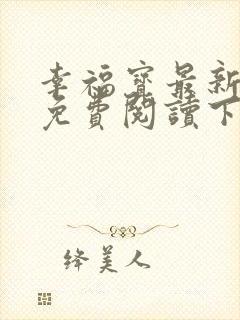 幸福寶最新
免費閱讀下
绛美人